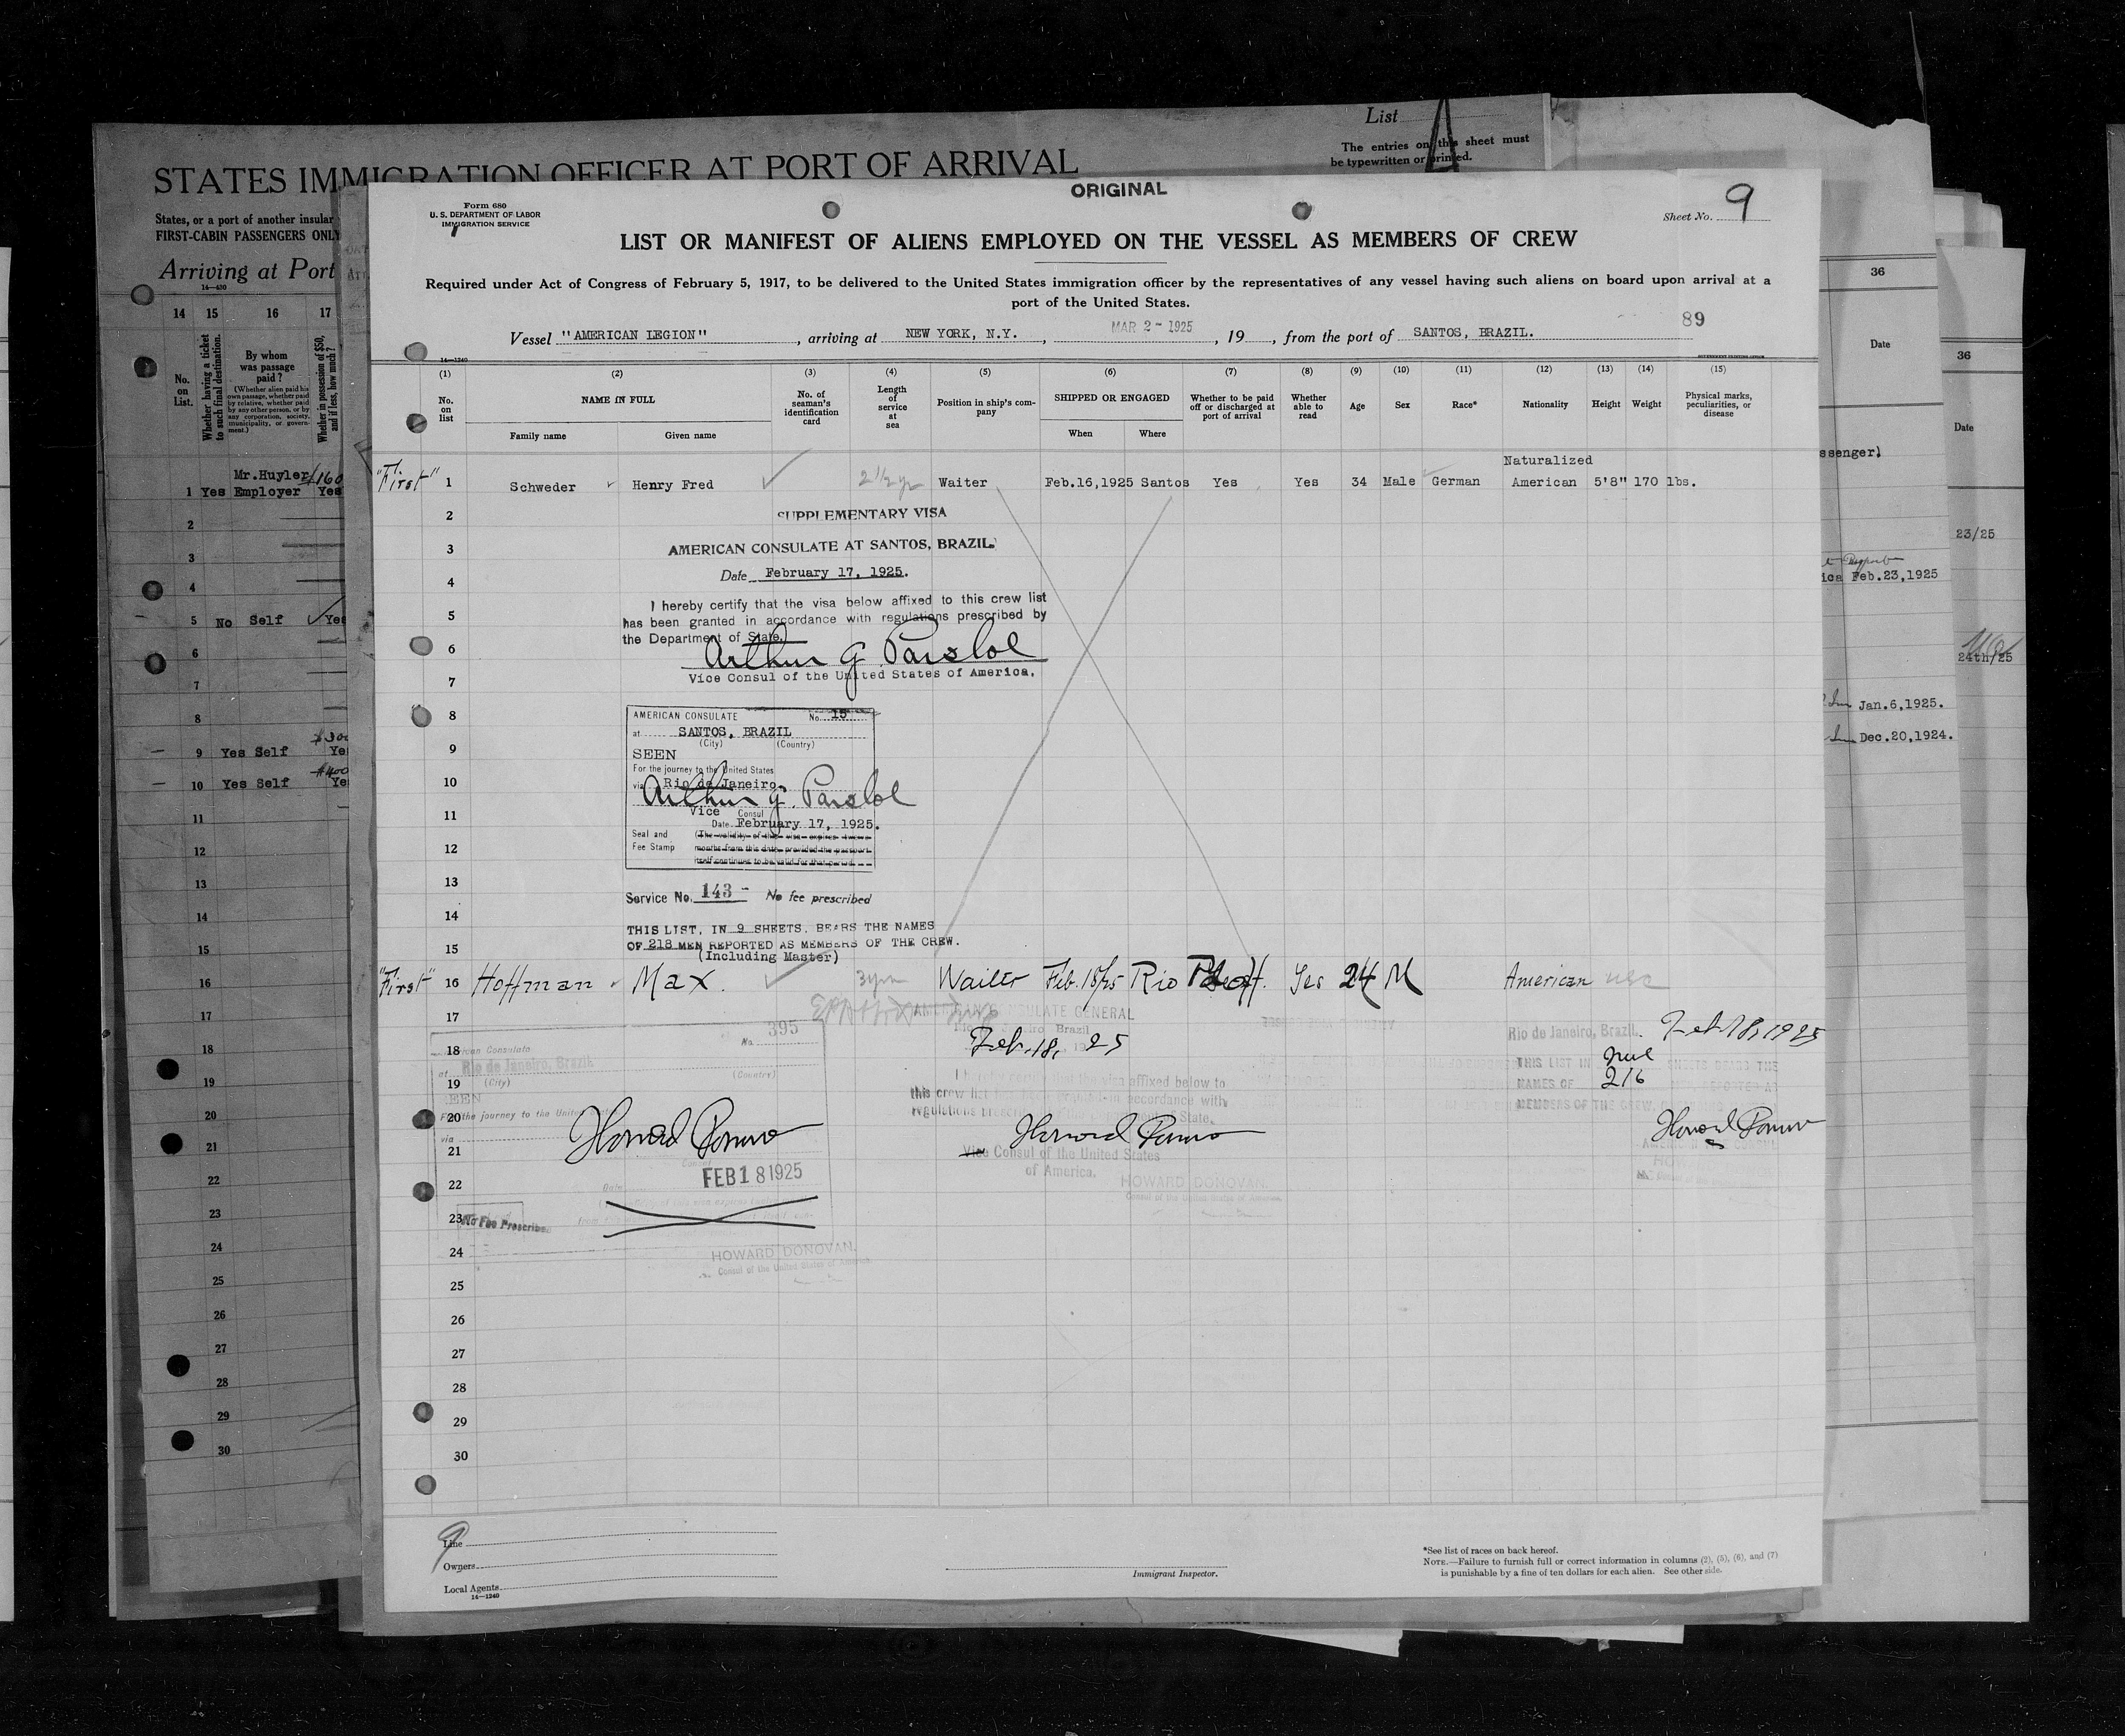 List
The entries on this sheet must
be typewritten or printed.
STATES IMMIGRATION OFFICER AT PORT OF ARRIVAL
States, or a port of another insular
FIRST-CABIN PASSENGERS ONLY
Arriving at Port
16—430
14 15 16 17
No. on List.
Whether having a ticket to such final destination.
By whom was passage paid?
(Whether alien paid his own passage, whether paid by relative, whether paid by any other person, or by any corporation, society, municipality, or government.)
Whether in possession of $50, and if less, how much?
Mr.Huyler $160
1 Yes Employer Yes
2
3
4
5 No Self Yes
6
7
8
$300
9 Yes Self Ye
$400
10 Yes Self Ye
11
12
13
14
15
16
17
18
19
20
21
22
23
24
25
26
27
28
29
30
ORIGINAL
Form 680
U. S. DEPARTMENT OF LABOR
IMMIGRATION SERVICE
Sheet No. 9
LIST OR MANIFEST OF ALIENS EMPLOYED ON THE VESSEL AS MEMBERS OF CREW
Required under Act of Congress of February 5, 1917, to be delivered to the United States immigration officer by the representatives of any vessel having such aliens on board upon arrival at a
port of the United States.
89
Vessel "AMERICAN LEGION", arriving at NEW YORK, N.Y., MAR 2- 1925, 19, from the port of SANTOS, BRAZIL.
14—1240
GOVERNMENT PRINTING OFFICE
(1) (2) (3) (4) (5) (6) (7) (8) (9) (10) (11) (12) (13) (14) (15)
No. on list
NAME IN FULL
Family name
Given name
No. of seaman's identification card
Length of service at sea
Position in ship's company
SHIPPED OR ENGAGED
When
Where
Whether to be paid off or discharged at port of arrival
Whether able to read
Age
Sex
Race*
Nationality
Height
Weight
Physical marks, peculiarities, or disease
Naturalized
"First" 1 Schweder Henry Fred 2 1/2 yr Waiter Feb.16,1925 Santos Yes Yes 34 Male German American 5'8" 170 lbs.
2 SUPPLEMENTARY VISA
3 AMERICAN CONSULATE AT SANTOS, BRAZIL
4 Date February 17, 1925.
I hereby certify that the visa below affixed to this crew list
5 has been granted in accordance with regulations prescribed by
the Department of State.
6 Arthur G Parsloe
7 Vice Consul of the United States of America.
8 AMERICAN CONSULATE No. 15
at SANTOS, BRAZIL
(City) (Country)
9 SEEN
For the journey to the United States
10 via Rio de Janeiro
Arthur G. Parsloe
11 Vice Consul
Date February 17, 1925.
Seal and (The validity of this visa expires twelve
12 Fee Stamp months from this date provided the passport
itself continues to be valid for that period.
13 Service No. 143 - No fee prescribed
14 THIS LIST, IN 9 SHEETS, BEARS THE NAMES
15 OF 218 MEN REPORTED AS MEMBERS OF THE CREW.
(Including Master)
"First" 16 Hoffman Max. 3 yrs Waiter Feb. 18/25 Rio Yes 24 M American USC
17 AMERICAN CONSULATE GENERAL
395
No.
Rio de Janeiro Brazil
Rio de Janeiro, Brazil. Feb 18, 1925
18 American Consulate
Feb. 18, 1925
at Rio de Janeiro, Brazil
THIS LIST IN SHEETS BEARS THE
19 (City) (Country)
I hereby certify that the visa affixed below to
NAMES OF 216 REPORTED AS
SEEN
this crew list in accordance with
MEMBERS OF THE CREW
20 For the journey to the United
regulations of State.
via
21 Vice Consul of the United States
of America.
22 FEB 18 1925
Date
HOWARD DONOVAN.
Consul of the United States of America.
23 No Fee Prescribed
24 HOWARD DONOVAN.
Consul of the United States of America.
25
26
27
28
29
30
9
Line
Owners
Local Agents
14—1240
Immigrant Inspector.
*See list of races on back hereof.
NOTE.—Failure to furnish full or correct information in columns (2), (5), (6), and (7)
is punishable by a fine of ten dollars for each alien. See other side.
36
Date
ssenger)
ica Feb.23,1925
Jan.6,1925.
Dec.20,1924.
36
Date
23/25
24th/25